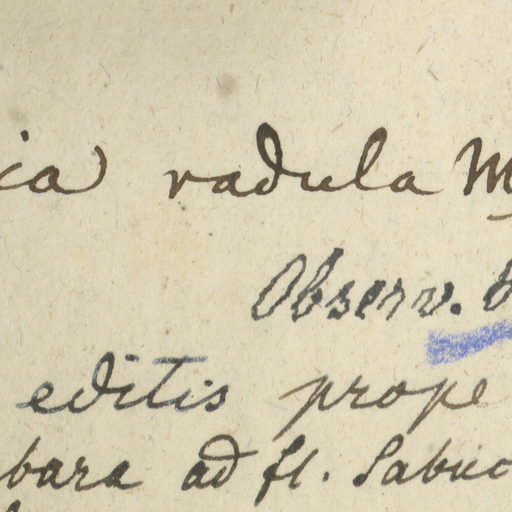 ica radula M
Observ.
editis prope
bara ad fl. Sabuc